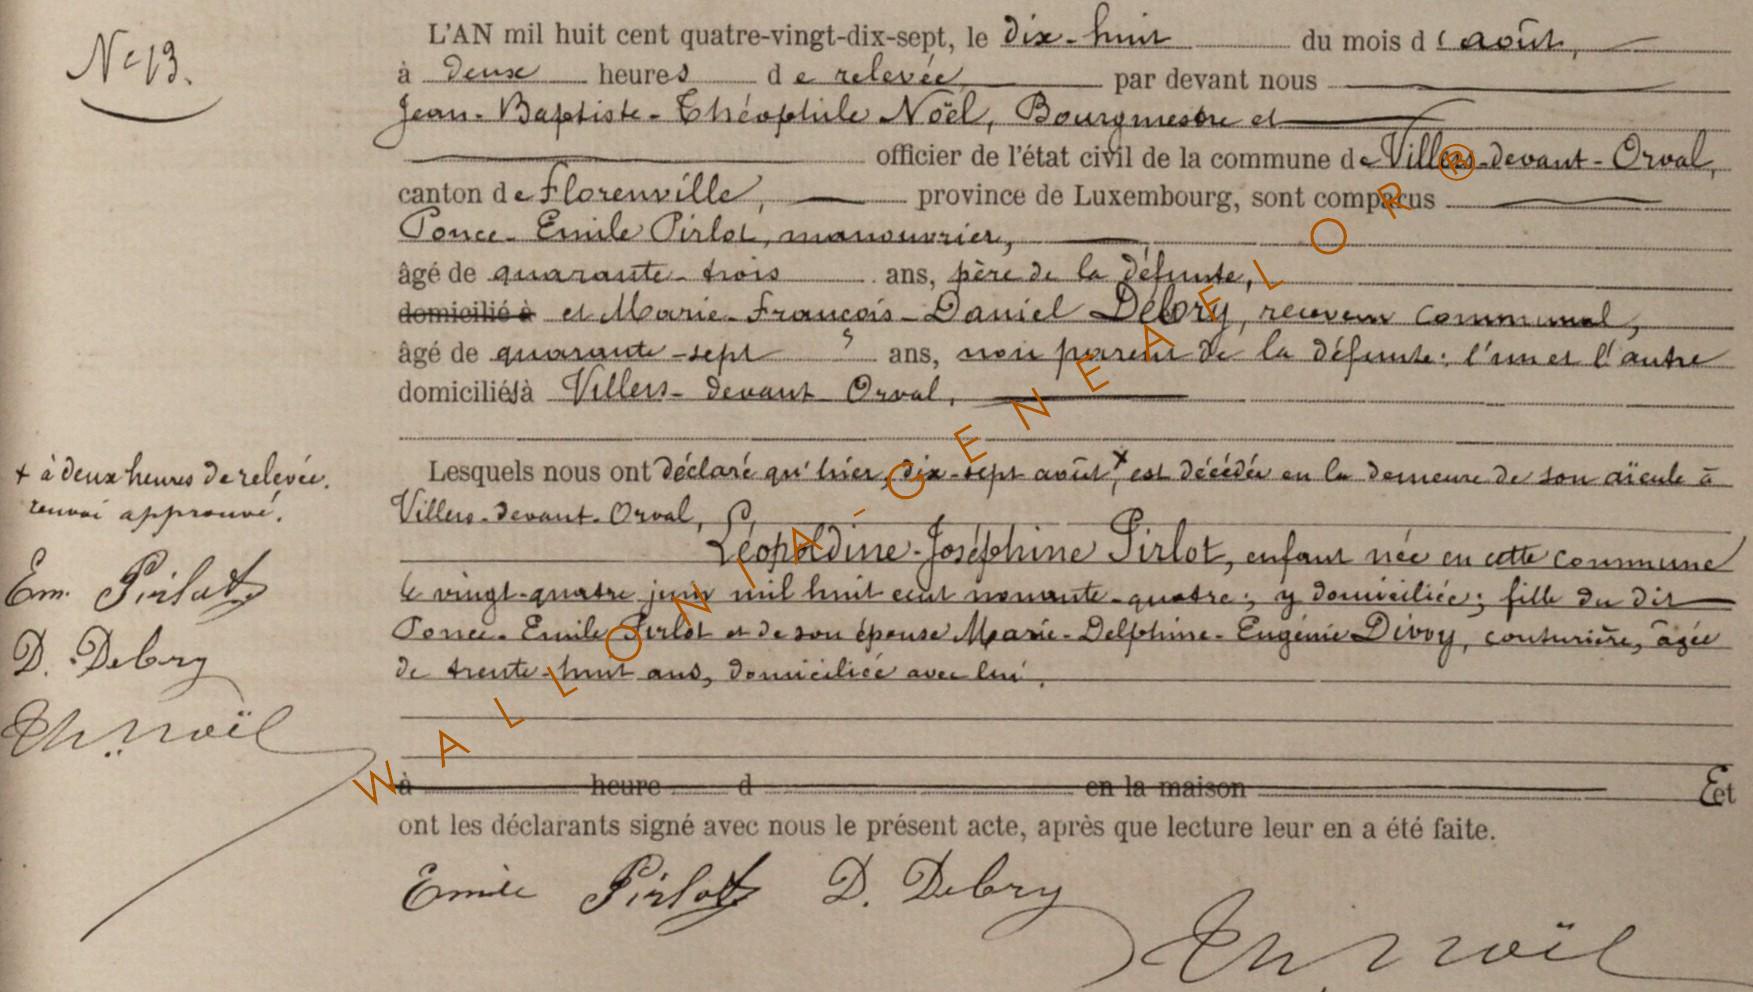 Nº 13.
L'AN mil huit cent quatre-vingt-dix-sept, le dix-huit du mois d'août,
à deux heures de relevée par devant nous
Jean-Baptiste-Théophile Noël, Bourgmestre et
officier de l'état civil de la commune de Villers-devant-Orval,
canton de Florenville, province de Luxembourg, sont comparus
Ponce-Emile Pirlot, manouvrier,
âgé de quarante-trois ans, père de la défunte,
domicilié à et Marie-François-Daniel Debry, receveur communal,
âgé de quarante-sept ans, non parent de la défunte: l'un et l'autre
domiciliés à Villers-devant-Orval,
Lesquels nous ont déclaré qu'hier, dix-sept août, + est décédée en la demeure de son aïeule à
+ à deux heures de relevée.
renvoi approuvé.
Villers-devant-Orval,
Léopoldine-Joséphine Pirlot, enfant née en cette commune
le vingt-quatre juin mil huit cent nonante-quatre; y domiciliée; fille du dit
Ponce-Emile Pirlot et de son épouse Marie-Delphine-Eugénie Divoy, couturière, âgée
de trente-huit ans, domiciliée avec lui.
Em. Pirlot
D. Debry
Th. Noël
à heure d en la maison Et
ont les déclarants signé avec nous le présent acte, après que lecture leur en a été faite.
Emile Pirlot D. Debry
Th Noël
WALLONIA-GENEAELOR®